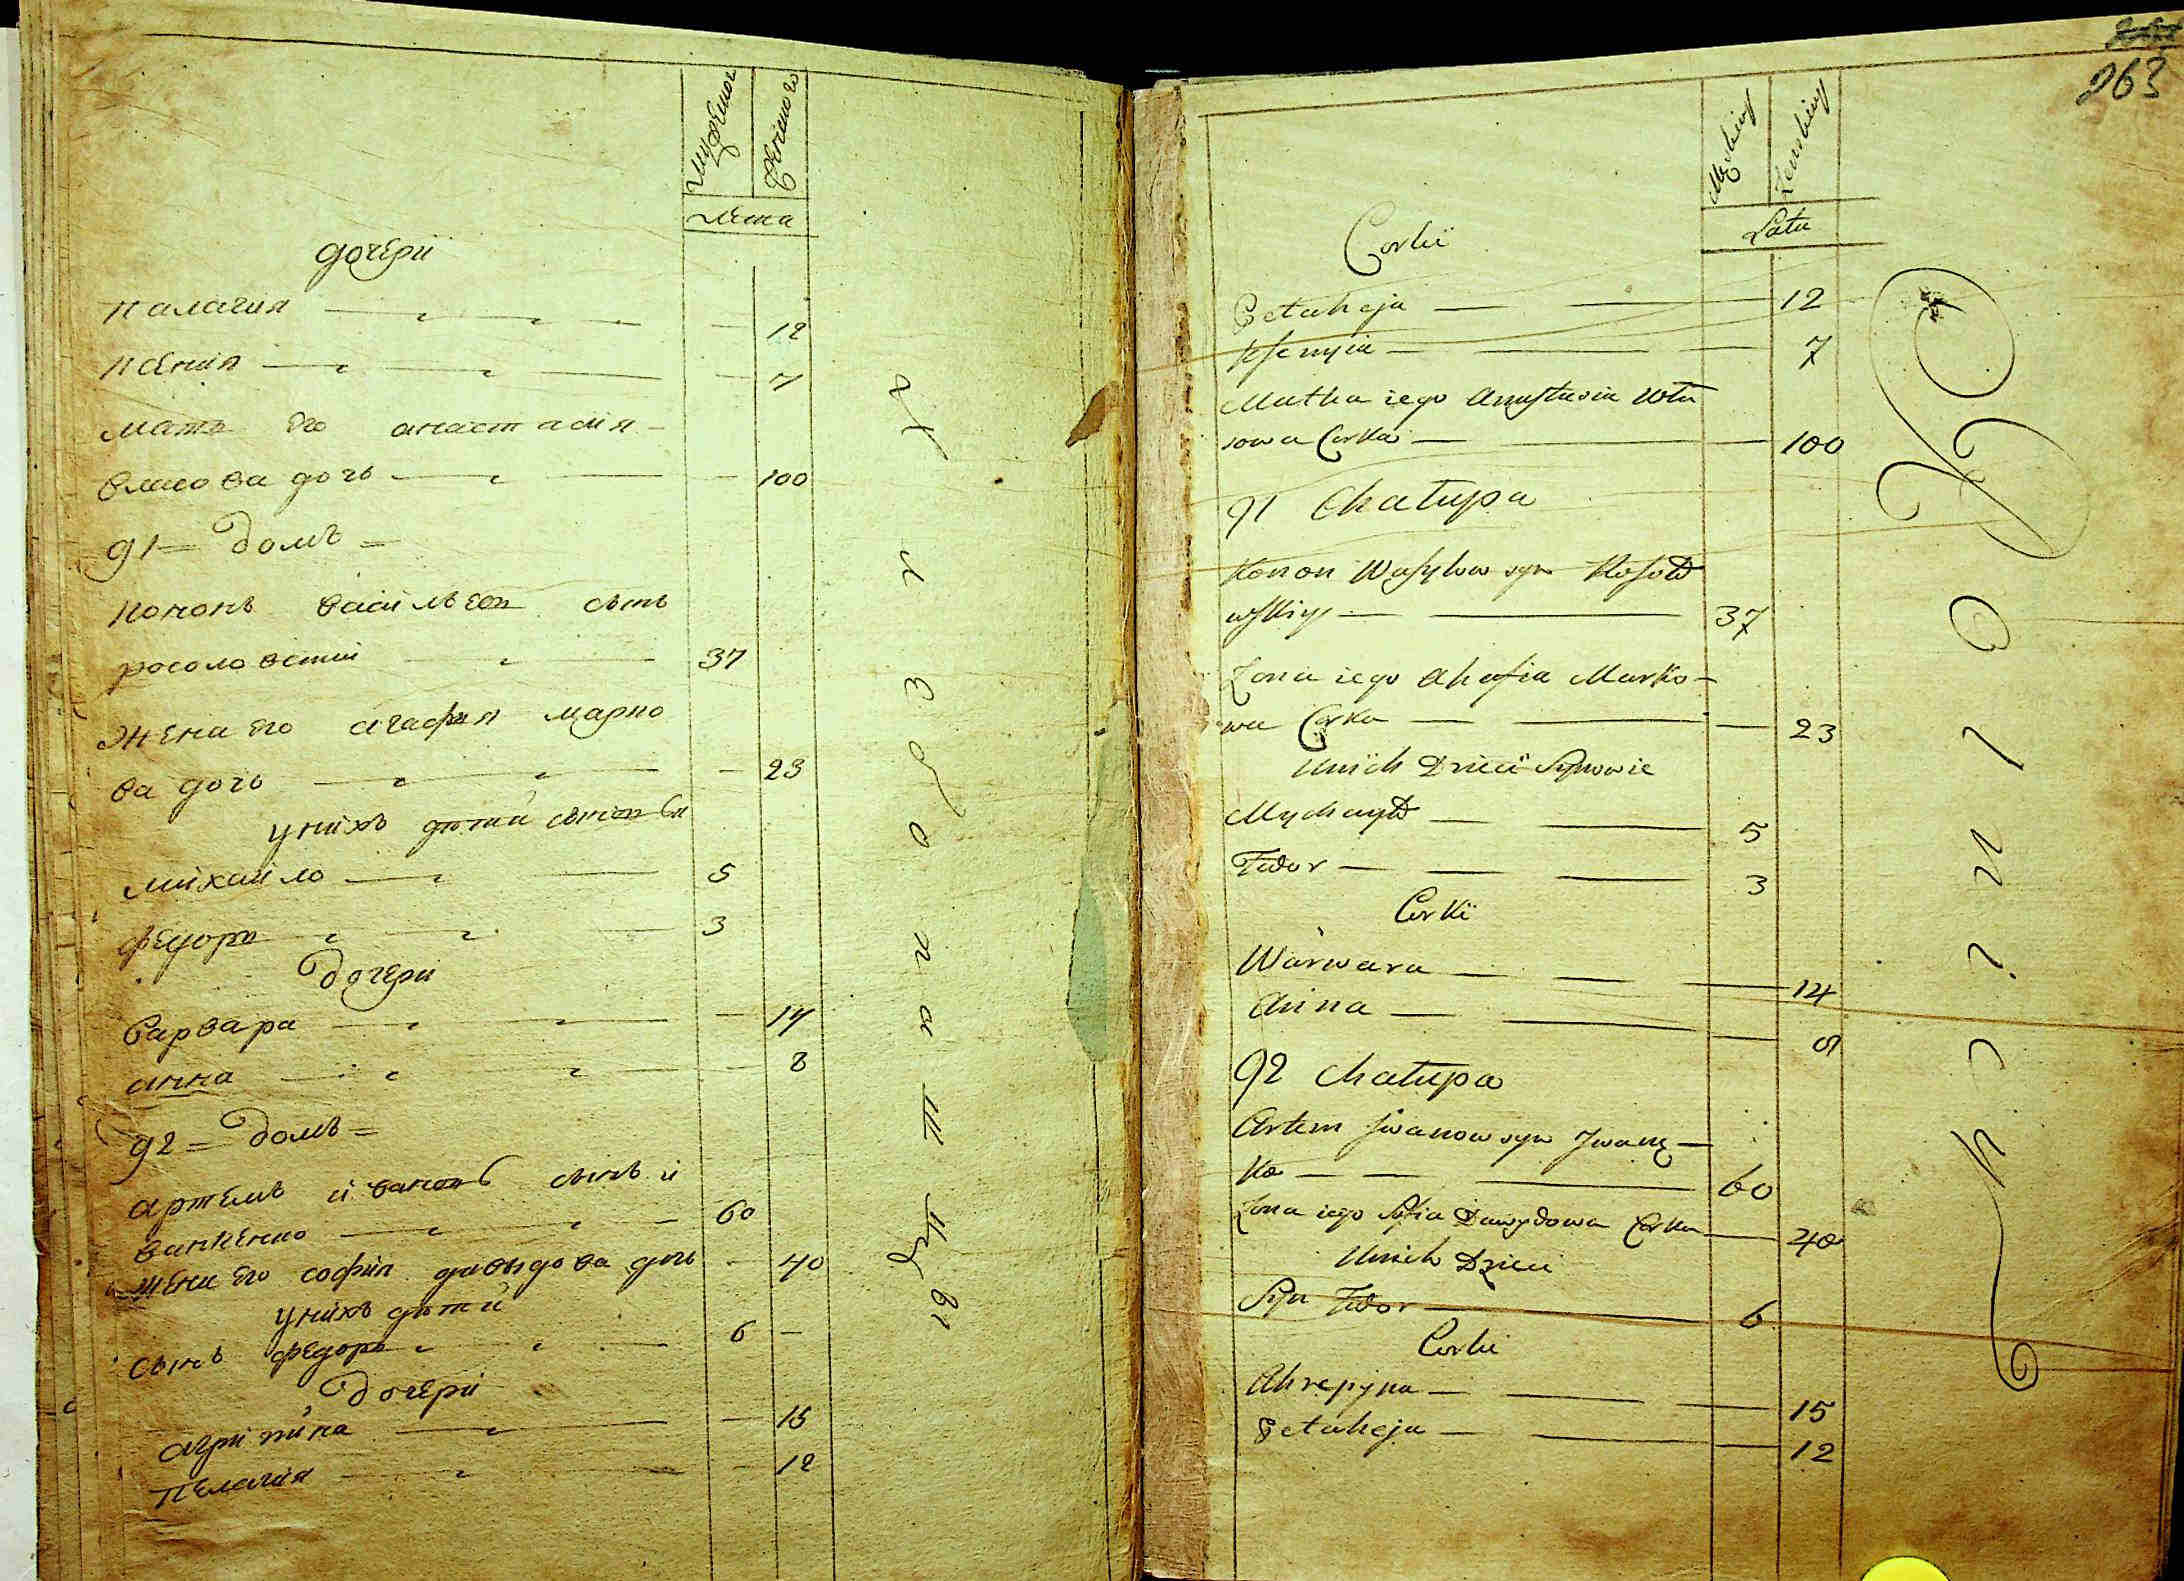 мужеска
женска
Лета
дочери
палагия 12
ксения 7
мать его анастасия
власова дочь 100
91 = Домъ =
кононъ васильевъ сынъ
росоловский 37
жена его агафия марко
ва дочь 23
у нихъ дѣтей сыновья
михайло 5
федоръ 3
Дочери
варвара 14
анна 8
92 = Домъ =
артемъ ивановъ сынъ и
ванкенко 60
жена его софия давыдова дочь 40
у нихъ дѣтей
сынъ федоръ 6
Дочери
агрипина 15
пелагия 12
263
Męskiey
Zenskiey
Lata
Corki
Pelaheja 12
Ksenyia 7
Matka iego Anastasia Wła
sowa Corka 100
91 Chałupa
Konon Wasylow syn Rosoło
wskiy 37
Zona iego Ahafia Marko-
wa Corka 23
Unich Dzieci Synowie
Mychayło 5
Fedor 3
Corki
Warwara 14
Anna 8
92 Chałupa
Artem Jwanow syn Jwanę-
ko 60
Zona iego Sofia Dawydowa Corka 40
Unich Dzieci
Syn Fedor 6
Corki
Ahrepyna 15
Pelaheja 12